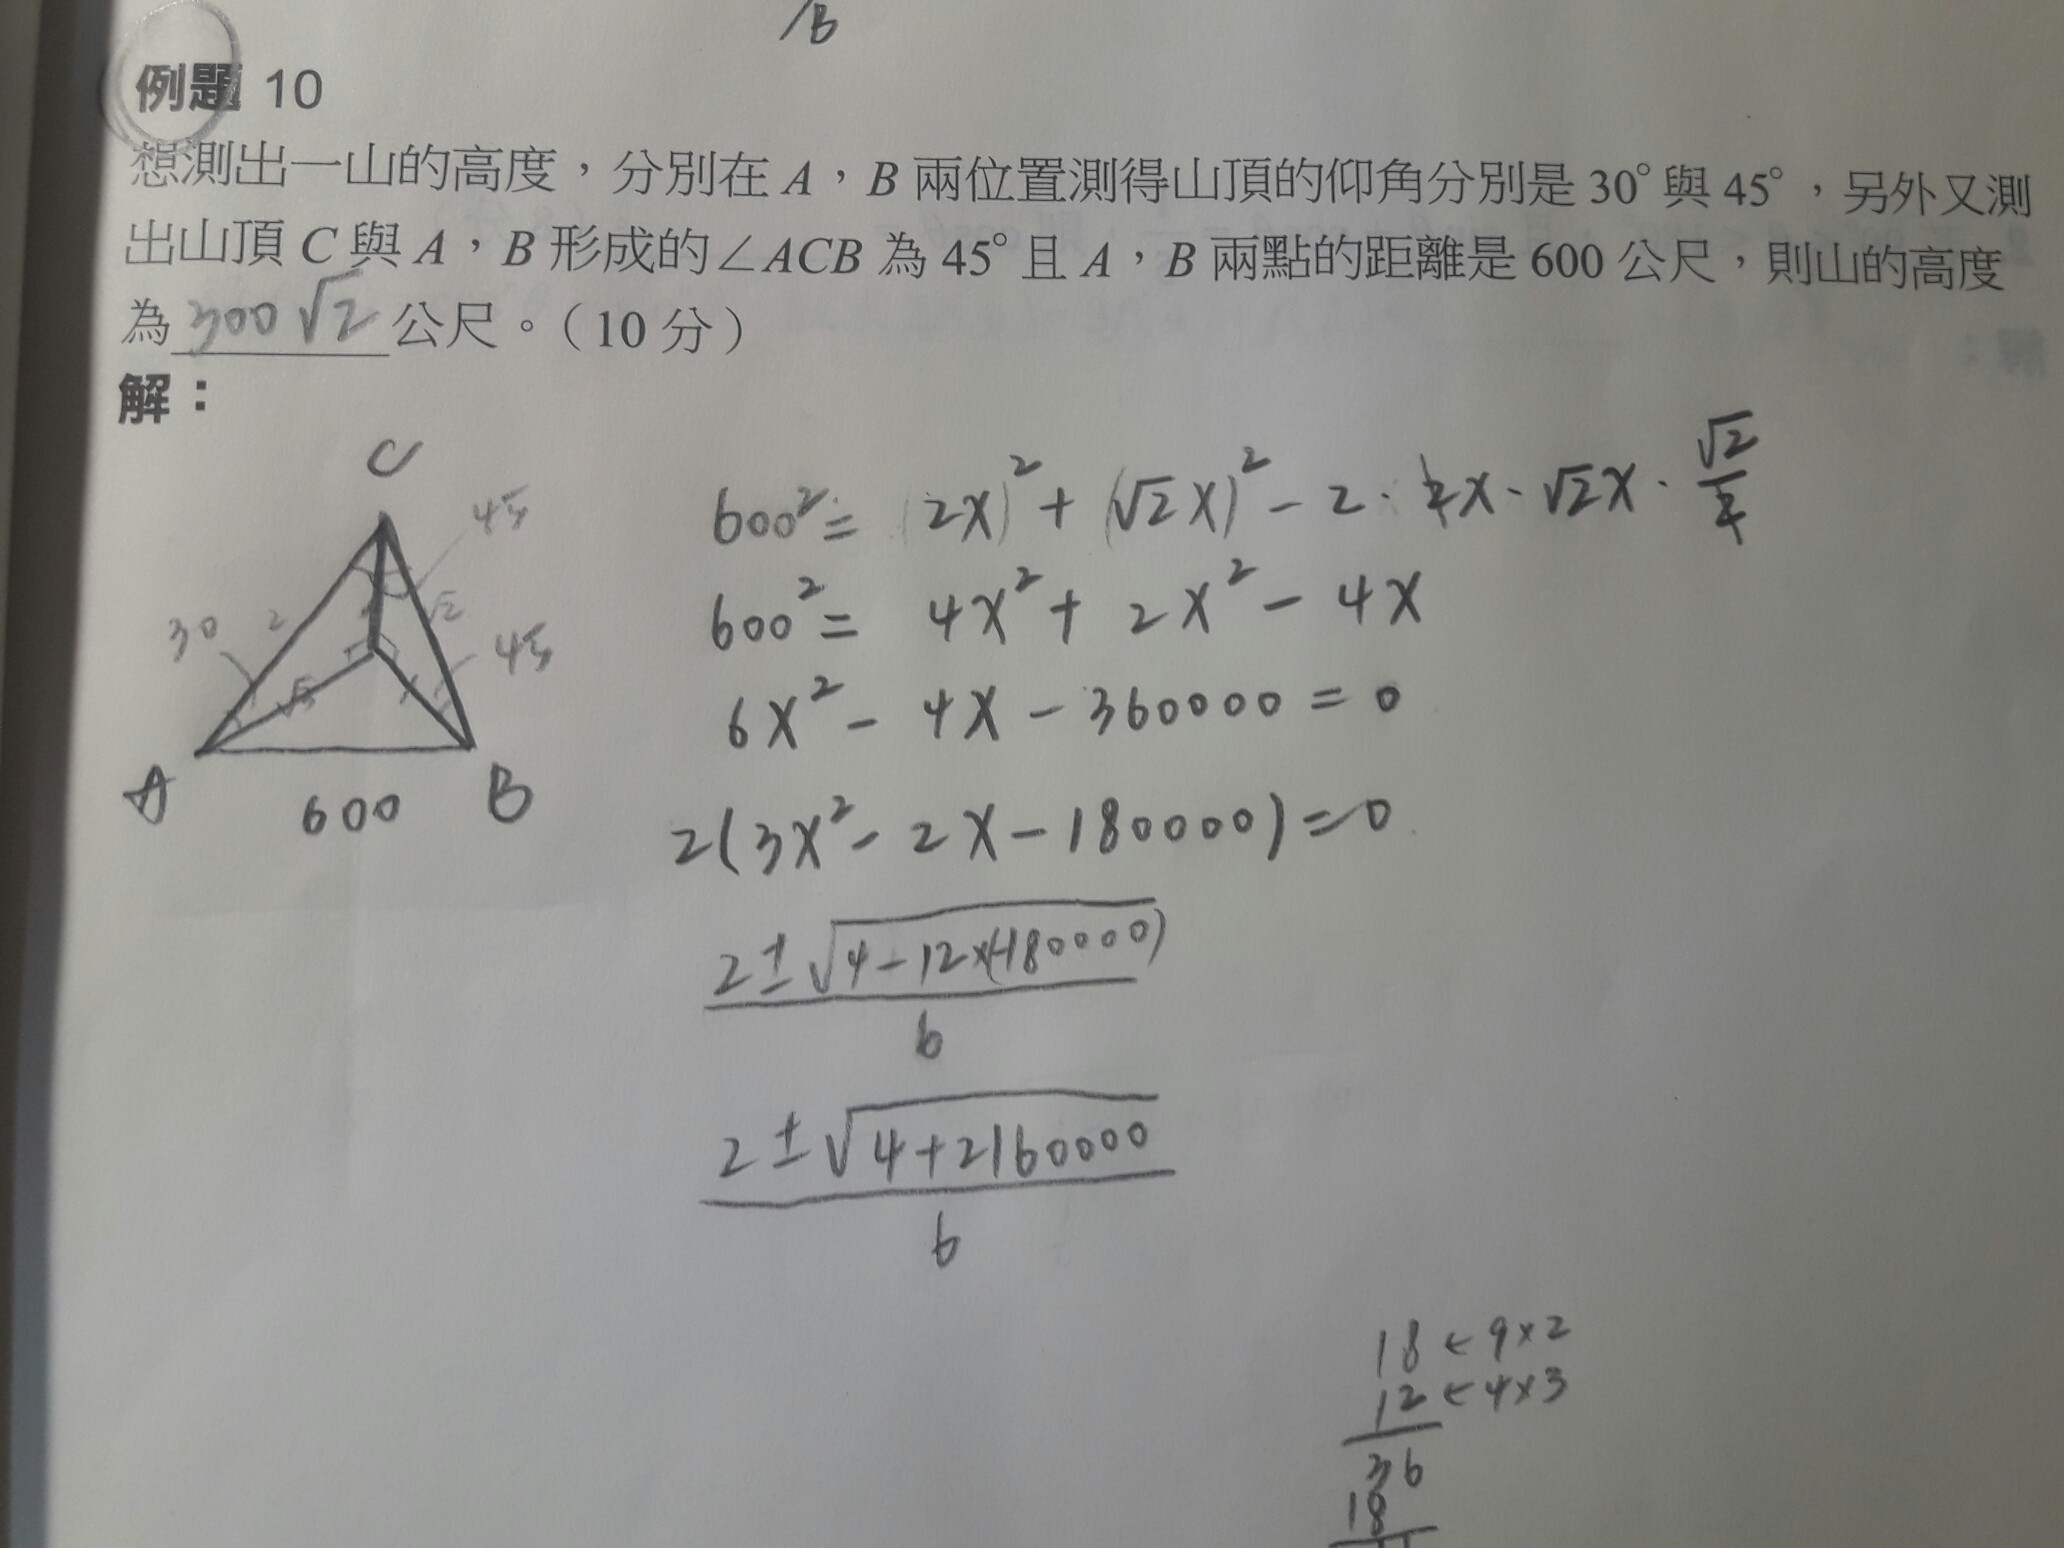 B
例題 10
想測出一山的高度，分別在 A，B 兩位置測得山頂的仰角分別是 30° 與 45°，另外又測
出山頂 C 與 A，B 形成的∠ACB 為 45° 且 A，B 兩點的距離是 600 公尺，則山的高度
為 300√2 公尺。（10 分）
解：
C
45
30
2
√2
45
√3
A
600
B
600² = (2x)² + (√2x)² - 2 · 2x · √2x · √2/2
600² = 4x² + 2x² - 4x
6x² - 4x - 360000 = 0
2(3x² - 2x - 180000) = 0
2 ± √4-12×(-180000)
6
2 ± √4+2160000
6
18 ← 9×2
12 ← 4×3
36
18